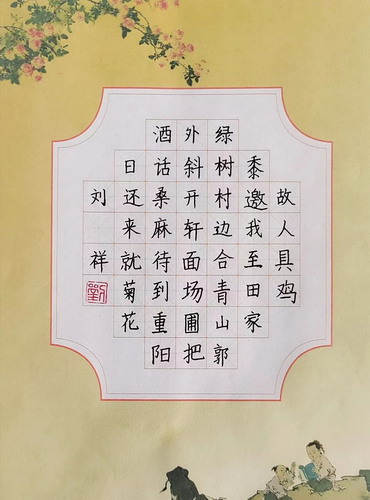 故人具鸡
黍邀我至田家
绿树村边合青山郭
外斜开轩面场圃把
酒话桑麻待到重阳
日还来就菊花
刘 祥
劉